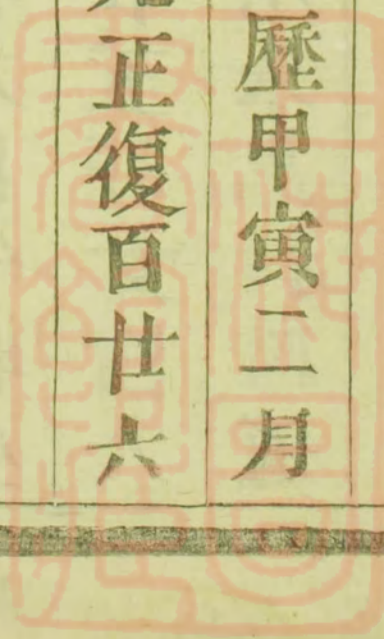 歷甲寅二月
正復百廿六